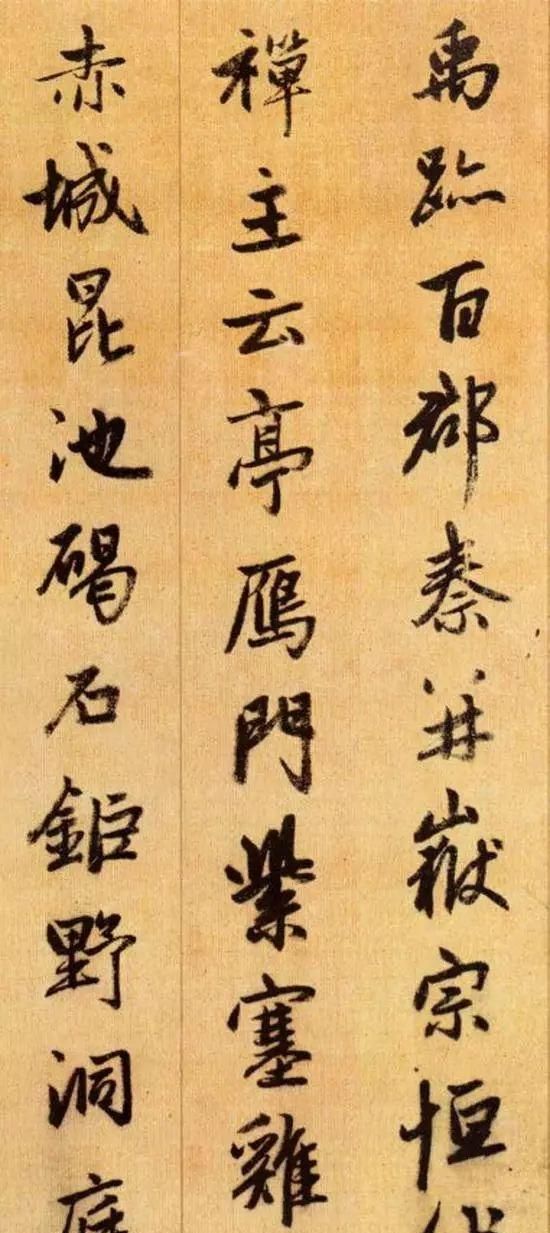 禹跡百郡秦并嶽宗恒
禪主云亭鴈門紫塞雞
赤城昆池碣石鉅野洞庭